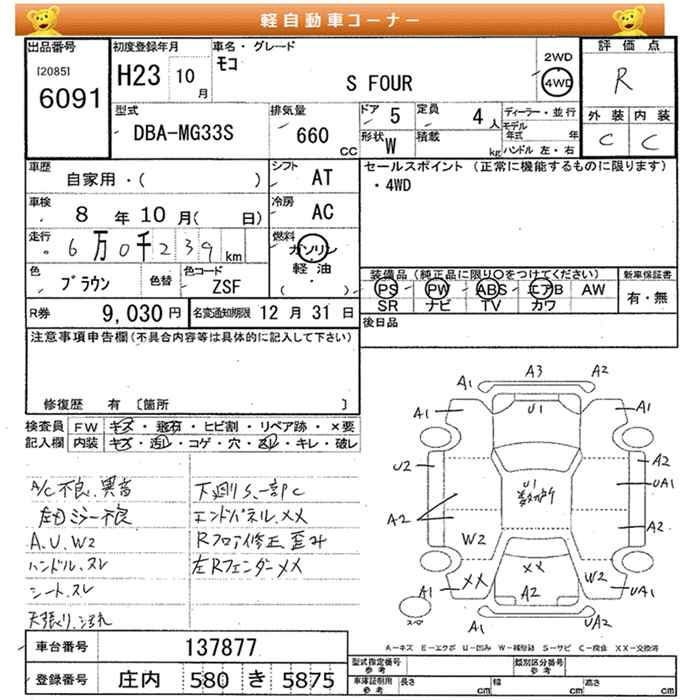 軽自動車コーナー
出品番号
[2085]
6091
初度登録年月
H23 10 月
車名・グレード
モコ
S FOUR
2WD
4WD
評価点
R
外装 内装
C C
型式
DBA-MG33S
排気量
660 CC
ドア 5
定員 4 人
形状 W
積載 kg
ディーラー・並行
モデル
年式 年
ハンドル 左・右
車歴
自家用・( )
シフト AT
車検
8 年 10 月( 日)
冷房 AC
走行
6万0千239 km
燃料
ガソリン
軽油
( )
色 ブラウン 色替
色コード ZSF
R券 9,030 円
名変通知期限 12 月 31 日
セールスポイント (正常に機能するものに限ります)
・4WD
装備品(純正品に限り〇をつけてください)
PS PW ABS エアB AW
SR ナビ TV カワ
新車保証書
有・無
後日品
注意事項申告欄(不具合内容等は具体的に記入して下さい)
修復歴 有 〔箇所 〕
検査員 FW キズ・飛石・ヒビ割・リペア跡・×要
記入欄 内装 キズ・汚レ・コゲ・穴・スレ・キレ・破レ
A/C不良、異音
左ミラー不良
A、U、W2
ハンドル、スレ
シート、スレ
天張り、汚れ
下廻りS、一部C
エンドパネル、XX
Rフロア修正、歪み
左Rフェンダー XX
A1 A3 A2
A1 U1 A1
U2 A2
U1 UA1
A2 A2
W2
XX XX W2
A1 A2 UA1
スペ A1 UA2
A-キズ E-エクボ U-凹み W-補修跡 S-サビ C-腐食 XX-交換済
車台番号 137877
登録番号 庄内 580 き 5875
型式指定番号 参考
類別区分番号 参考
車庫証明用 参考 長さ cm 幅 cm 高さ cm